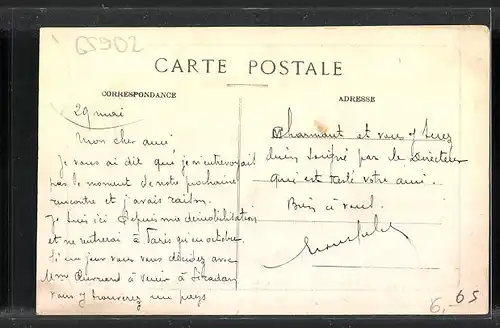 G5902
CARTE POSTALE
CORRESPONDANCE
ADRESSE
29 mai
Mon cher ami,
Je vous ai dit que je n'entrevoyait
pas le moment de notre prochaine
rencontre et j'avais raison.
Je suis ici depuis ma démobilisation
et ne rentrerai à Paris qu'en octobre.
Si un jour vous vous décidez avec
Mme à venir à Siradan
vous y trouverez un pays
charmant et vous y serez
bien soigné par le Directeur
qui est resté votre ami.
Bien à vous.
6,-
65